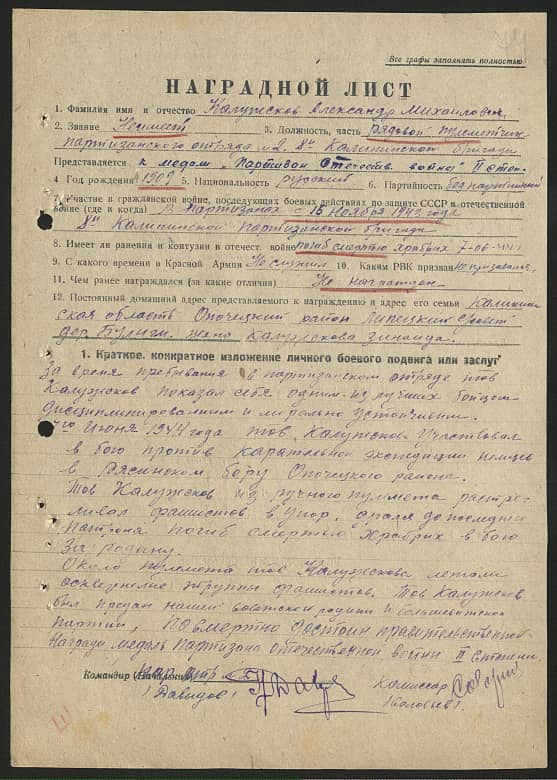 Все графы заполнять полностью
НАГРАДНОЙ ЛИСТ
1. Фамилия имя и отчество Калужсков Александр Михайлович
2. Звание 3. Должность, часть рядовой пулеметчик
партизанского отряда №2. 8й Калининской бригады
Представляется к медали „Партизан Отечеств. войны" II степ.
4 Год рождения 1909 5. Национальность русский 6. Партийность беспартийный
7. Участие в гражданской войне, последующих боевых действиях по защите СССР и отечественной
войне (где и когда) В партизанах с 15 ноября 1943 года
8й Калининской партизанской бригады
8. Имеет ли ранения и контузии в отечест. войне погиб смертью храбрых 7-06-
9. С какого времени в Красной Армии Не служил 10. Каким РВК призван не призывался
11. Чем ранее награждался (за какие отличия) Не награжден
12. Постоянный домашний адрес представляемого к награждению и адрес его семьи Калинин
ская область Опочецкий район Липецкий с/совет
дер. жена Калужскова Зинаида.
1. Краткое, конкретное изложение личного боевого подвига или заслуг
За время пребывания в партизанском отряде тов
Калужсков показал себя одним из лучших бойцом
дисциплинированным и морально устойчивым.
7го Июня 1944 года тов. Калужсков Участвовал
в бою против карательной экспедиции немцев
в Рясинском бору Опочецкого района.
Тов Калужсков из ручного пулемета растре-
ливал фашистов в упор. до последнего
патрона погиб смертью храбрых в бою
За родину.
Около пулемета тов Калужскова
фашистов. Тов Калужсков
был предан нашей родины и большевистской
партии, посмертно достоин правительственной
Награды медаль Партизана отечественной войны II степени.
Командир
(Давидов)
Комиссар
(Соловьев).